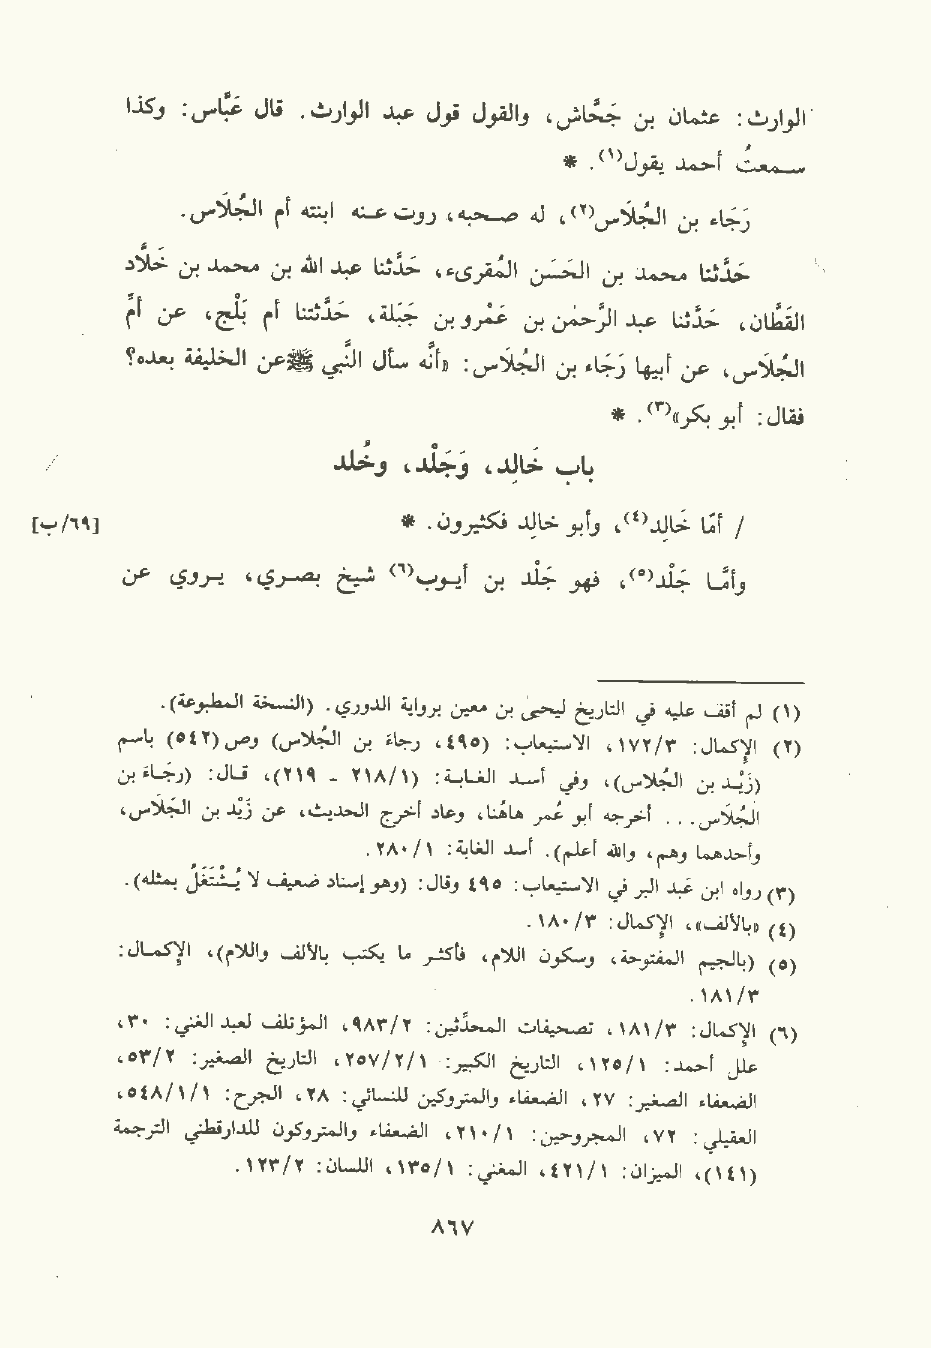 الوارث: عثمان بن جَحَّاش، والقول قول عبد الوارث. قال عَبَّاس: وكذا
سـمعتُ أحمد يقول(١). *
رَجَاء بن الجُلَاس(٢)، له صـحبه، روت عـنه ابنته أم الجُلَاس.
حَدَّثنا محمد بن الحَسَن المُقرىء، حَدَّثنا عبد الله بن محمد بن خَلَّاد
القَطَّان، حَدَّثنا عبد الرَّحمٰن بن عَمْرو بن جَبَلة، حَدَّثتنا أم بَلْج، عن أمِّ
الجُلَاس، عن أبيها رَجَاء بن الجُلَاس: «أنَّه سأل النَّبي ﷺ عن الخليفة بعده؟
فقال: أبو بكر»(٣). *
باب خَالِد، وَجَلْد، وخُلد
/ أمَّا خَالِد(٤)، وأبو خالِد فكثيرون. *
[٦٩/ب]
وأمَّـا جَلْد(٥)، فهو جَلْد بن أيـوب(٦) شيخ بصـري، يـروي عن
(١) لم أقف عليه في التاريخ ليحيىٰ بن معين برواية الدوري. (النسخة المطبوعة).
(٢) الإكمال: ١٧٢/٣، الاستيعاب: (٤٩٥، رجاء بن الجُلاس) وص(٥٤٢) باسم
(زيْـد بن الجُلاس)، وفي أسـد الغـابـة: (٢١٨/١ - ٢١٩)، قـال: (رجـاء بن
الجُلاس... أخرجه أبو عُمر هاهُنا، وعاد أخرج الحديث، عن زيْد بن الجَلَاس،
وأحدهما وهم، والله أعلم). أسد الغابة: ٢٨٠/١.
(٣) رواه ابن عَبد البر في الاستيعاب: ٤٩٥ وقال: (وهو إسناد ضعيف لا يُـشْتَغَلُ بمثله).
(٤) «بالألف»، الإكمال: ١٨٠/٣.
(٥) (بالجيم المفتوحة، وسكون اللام، فأكثـر ما يكتب بالألف واللام)، الإكمـال:
١٨١/٣.
(٦) الإكمال: ١٨١/٣، تصحيفات المحدِّثين: ٩٨٣/٢، المؤتلف لعبد الغني: ٣٠،
علل أحمد: ١٢٥/١، التاريخ الكبير: ٢٥٧/٢/١، التاريخ الصغير: ٥٣/٢،
الضعفاء الصغير: ٢٧، الضعفاء والمتروكين للنسائي: ٢٨، الجرح: ٥٤٨/١/١،
العقيلي: ٧٢، المجروحين: ٢١٠/١، الضعفاء والمتروكون للدارقطني الترجمة
(١٤١)، الميزان: ٤٢١/١، المغني: ١٣٥/١، اللسان: ١٢٣/٢.
٨٦٧